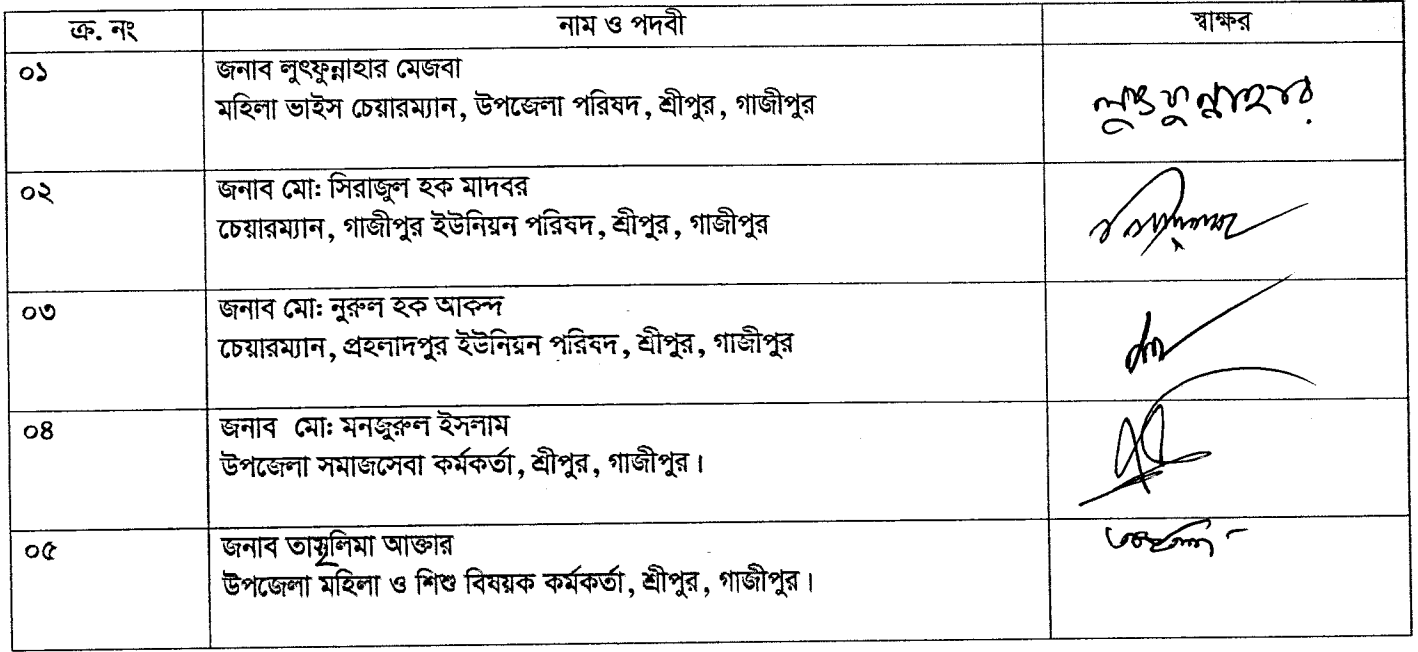 ক্র. নং নাম ও পদবী স্বাক্ষর
০১ জনাব লুৎফুন্নাহার মেজবা
মহিলা ভাইস চেয়ারম্যান, উপজেলা পরিষদ, শ্রীপুর, গাজীপুর লুৎফুন্নাহার
০২ জনাব মো: সিরাজুল হক মাদবর
চেয়ারম্যান, গাজীপুর ইউনিয়ন পরিষদ, শ্রীপুর, গাজীপুর
০৩ জনাব মো: নুরুল হক আকন্দ
চেয়ারম্যান, প্রহলাদপুর ইউনিয়ন পরিষদ, শ্রীপুর, গাজীপুর
০৪ জনাব মো: মনজুরুল ইসলাম
উপজেলা সমাজসেবা কর্মকর্তা, শ্রীপুর, গাজীপুর।
০৫ জনাব আক্তার
উপজেলা মহিলা ও শিশু বিষয়ক কর্মকর্তা, শ্রীপুর, গাজীপুর।